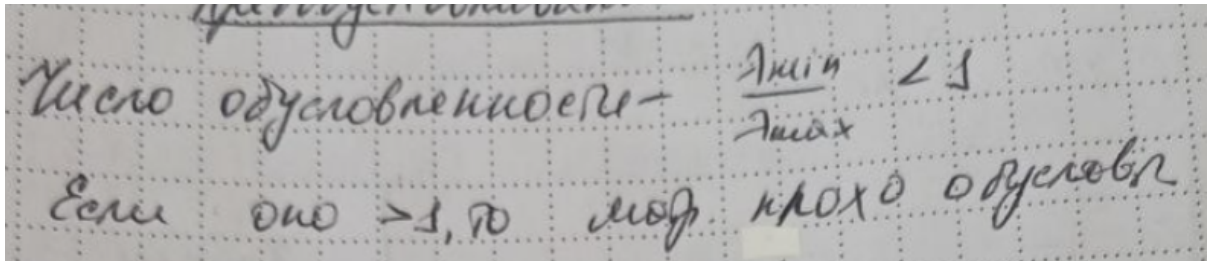 Число обусловленности – λmin / λmax < 1
Если оно >1, то мат. плохо обусловл